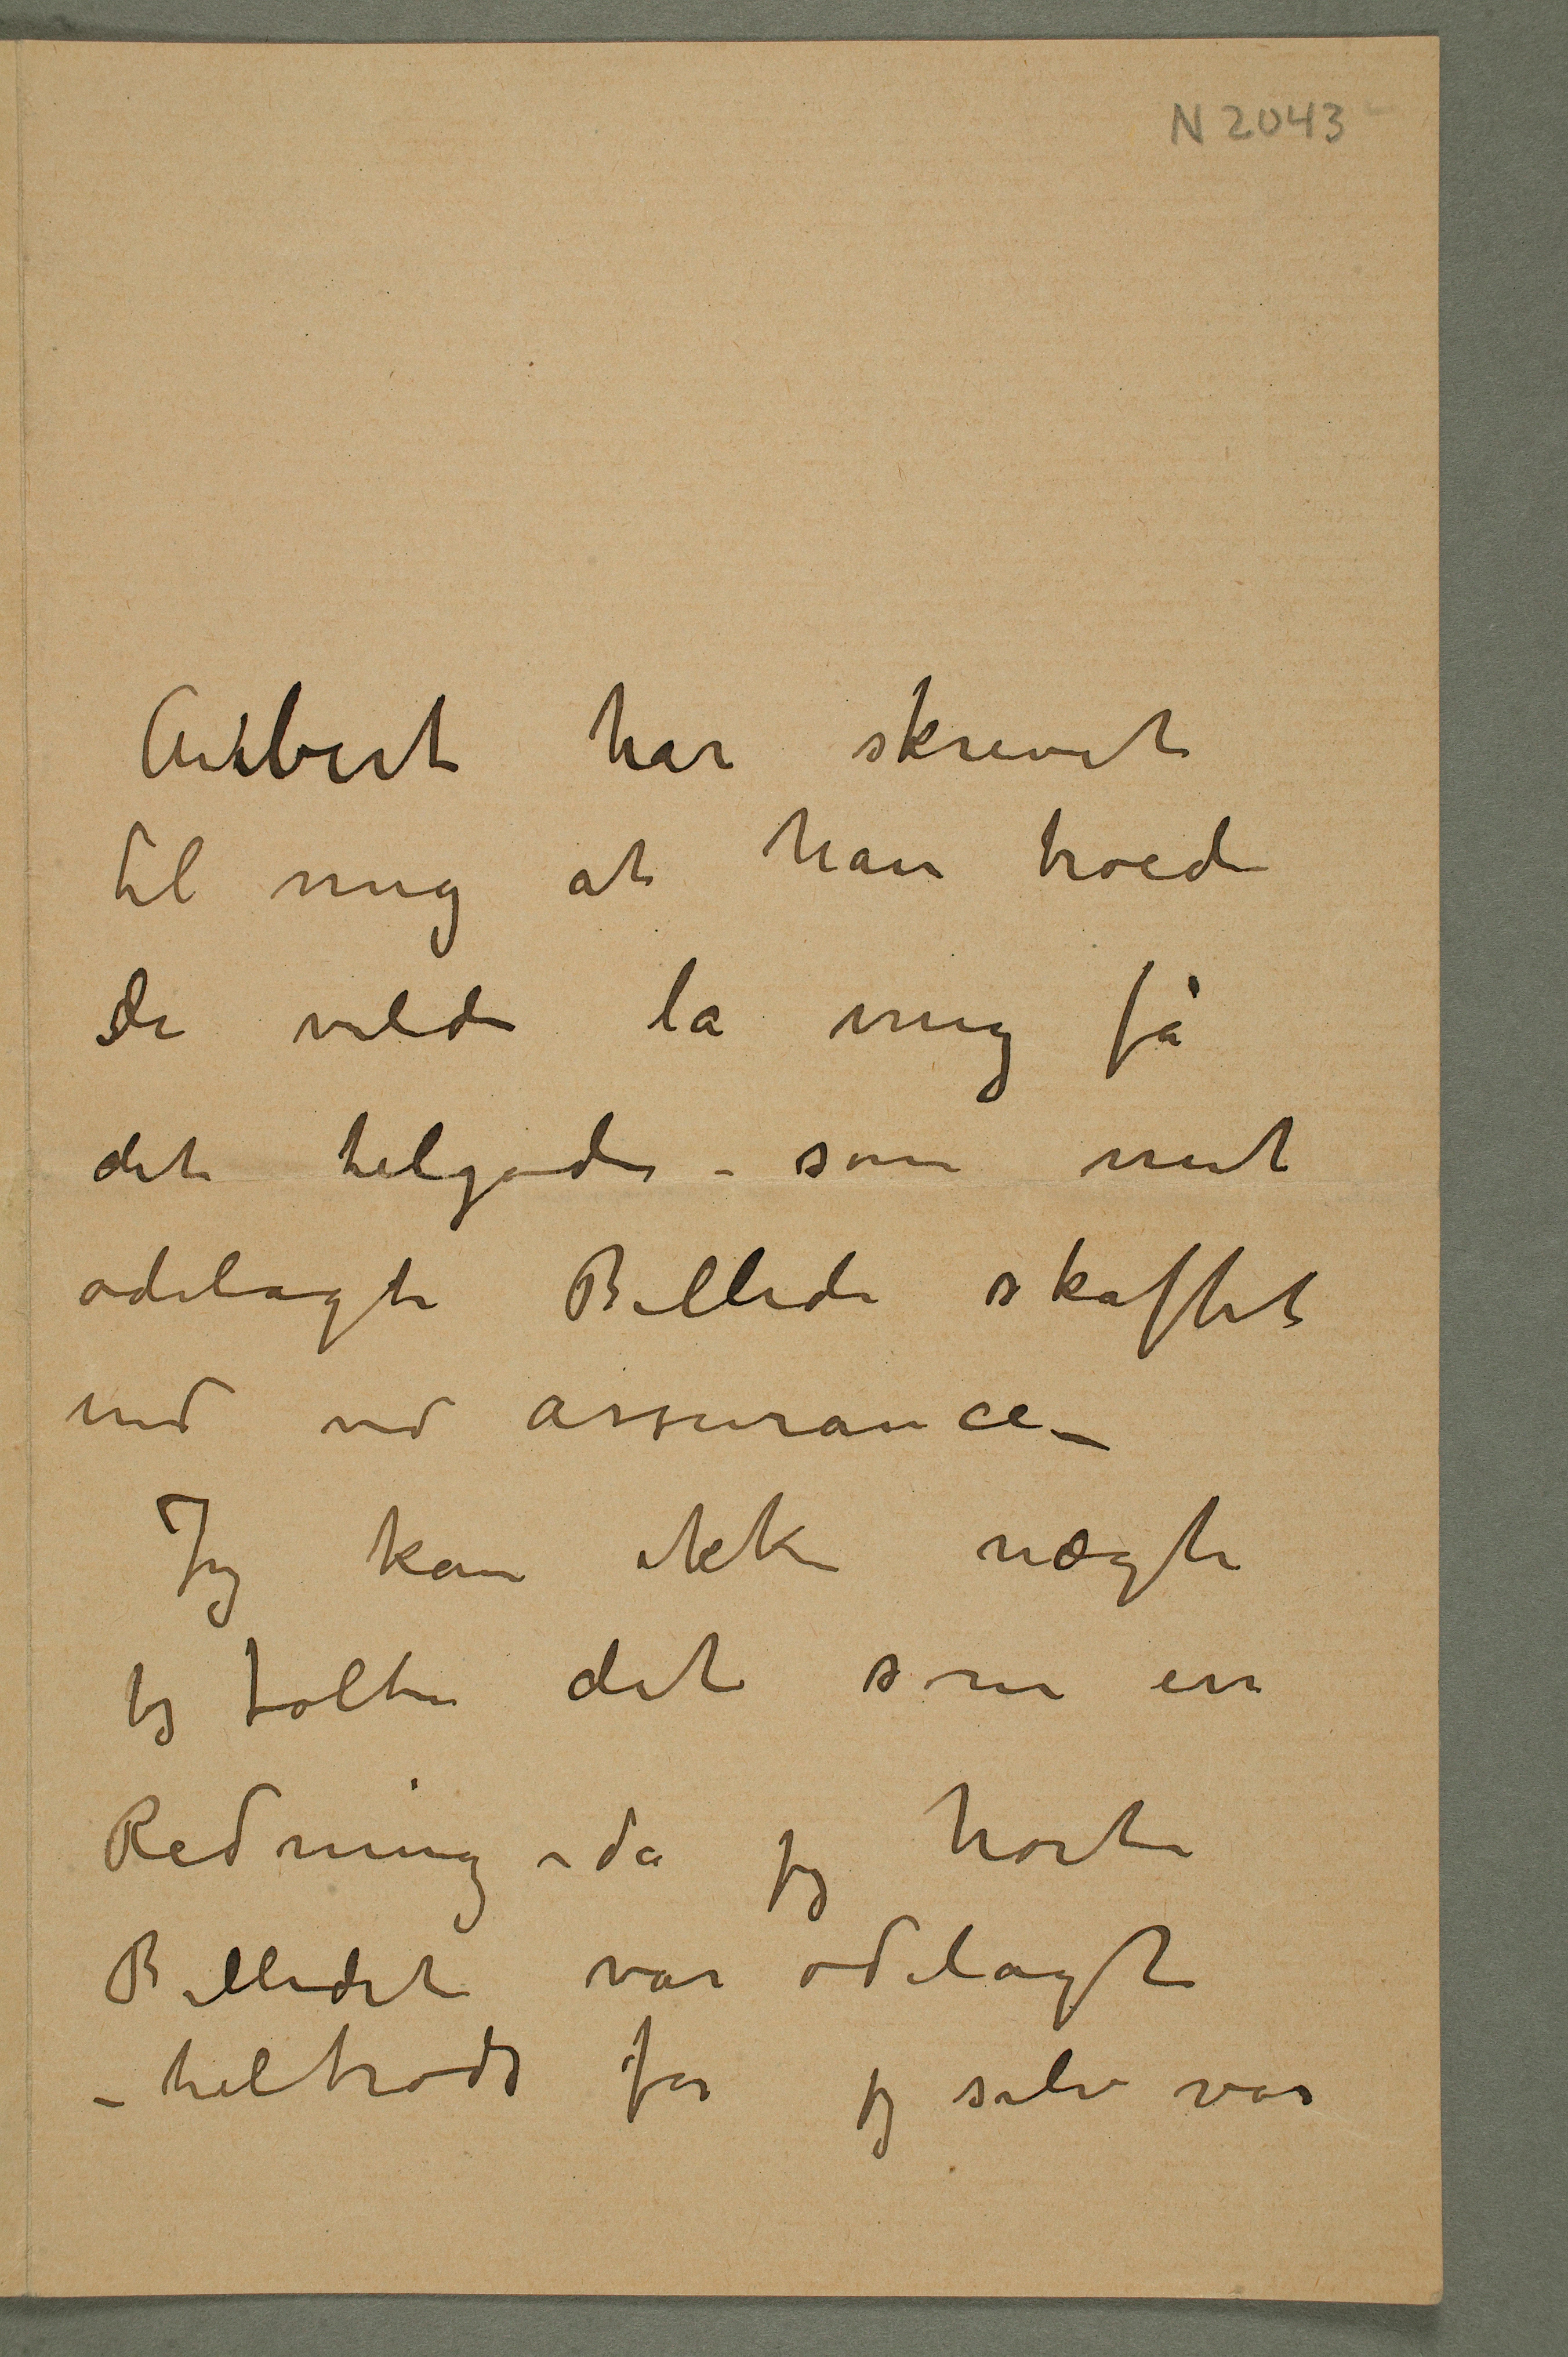 N 2043
Aubert har skrevet
til mig at han troede
De vilde la mig få
det tilgode – som mit
ødelagte Billede skaffet
ind ved assurance –
Jeg kan ikke nægte
jeg følte det som en
Redning – da jeg hørte
Billedet var ødelagt
– tiltrods for jeg selv var